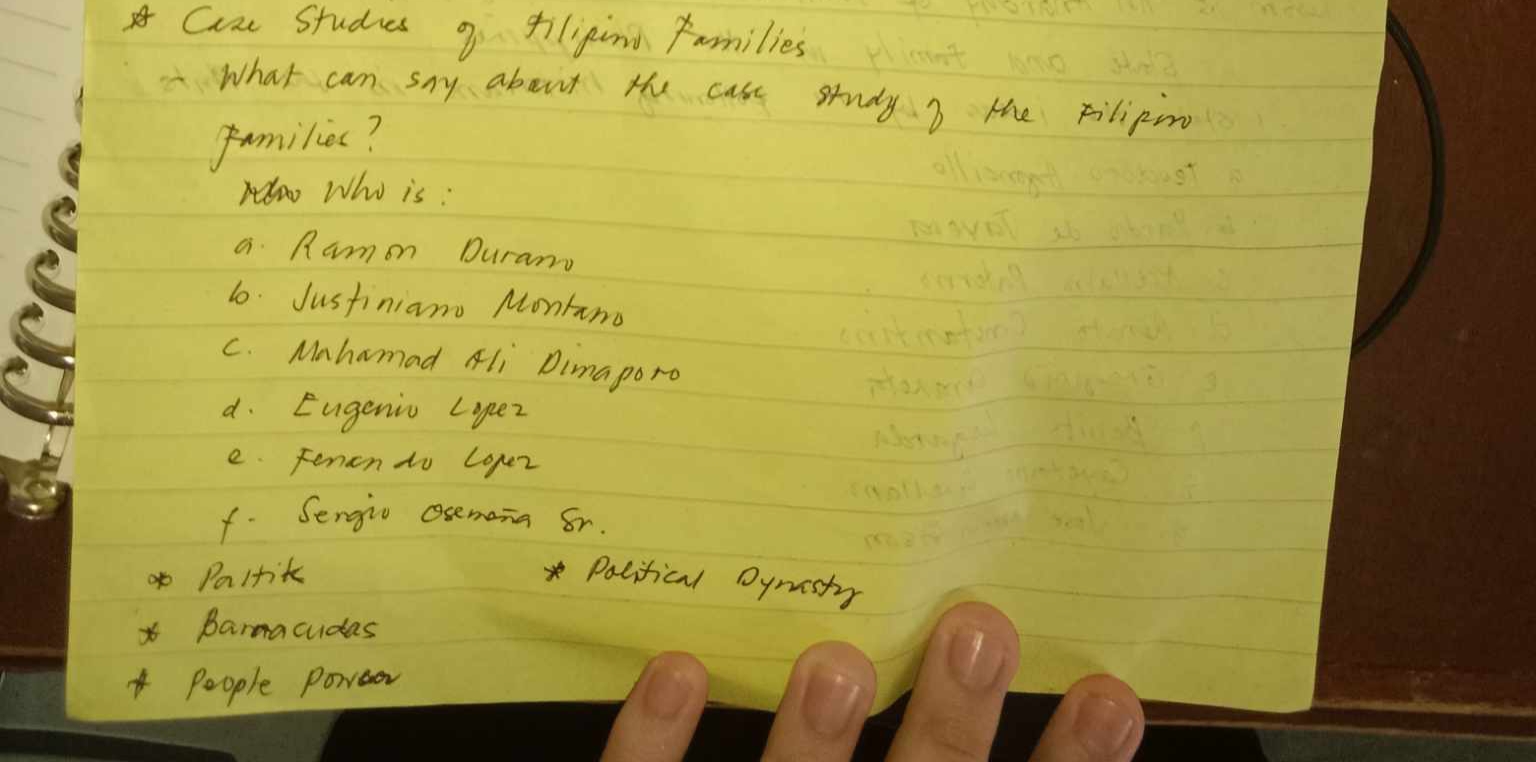 * Case Studies of Filipino Families
- What can say about the case study of the Filipino
Families?
Who is :
a. Ramon Durano
b. Justiniano Montano
c. Mahamad Ali Dimaporo
d. Eugenio Lopez
e. Fenando Lopez
f. Sergio Osemeña Sr.
* Paltik * Political Dynasty
* Barracudas
* People Power